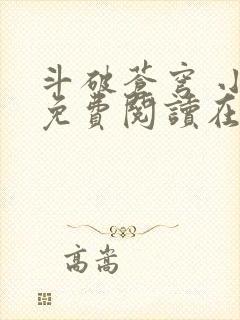 斗破苍穹 小
免費閱讀在
高嵩